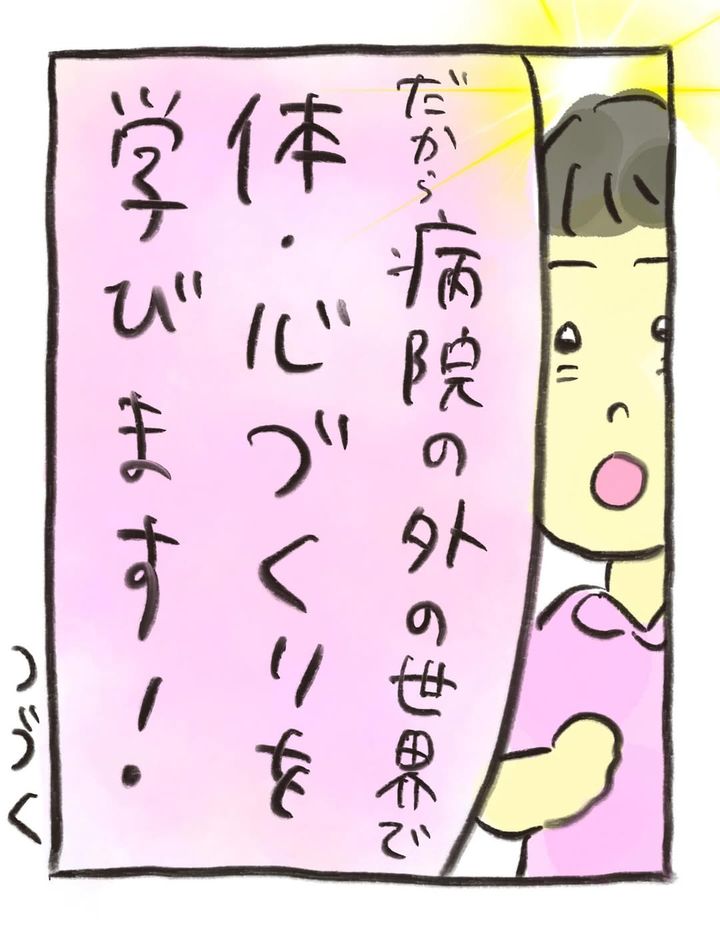 だから病院の外の世界で
体・心づくりを
学びます!
つづく